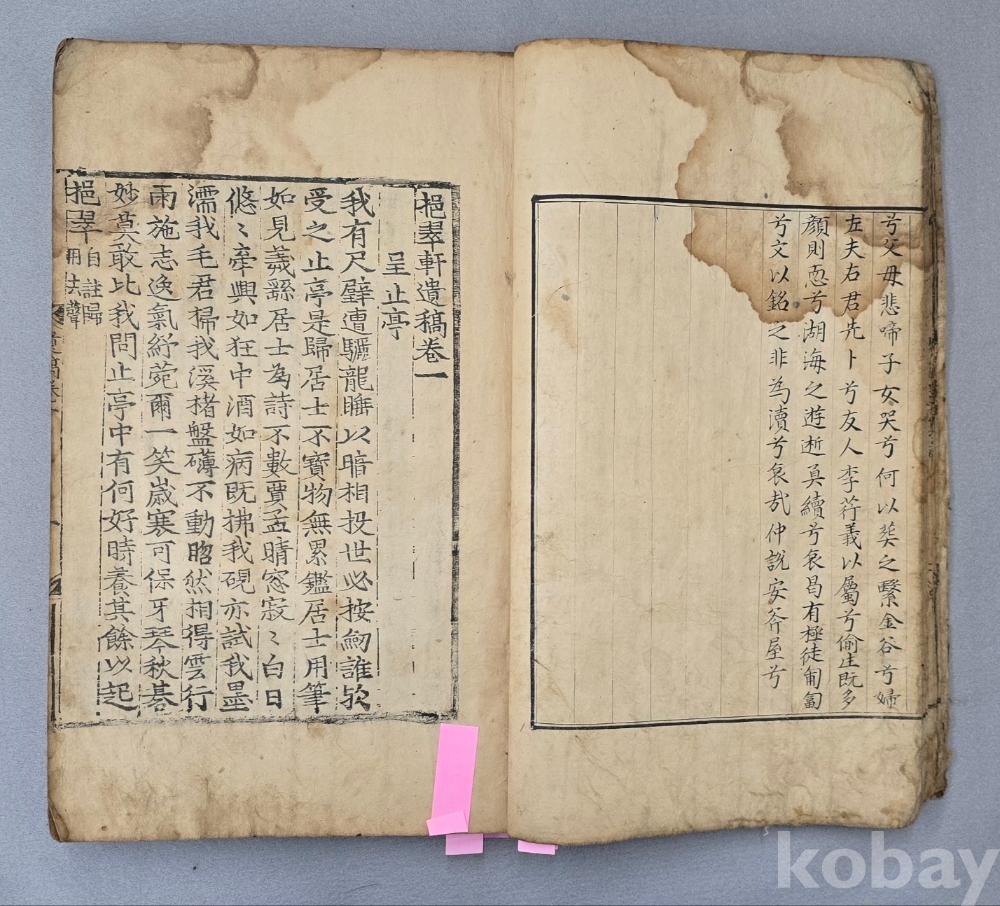 兮父母悲啼子女哭兮何以葬之繫金谷兮婦
左夫右君先卜兮友人李荇義以屬兮偷生既多
顔則恧兮湖海之遊逝莫續兮哀曷有極徒匍匐
兮文以銘之非為瀆兮哀哉仲說安斧屋兮
挹翠軒遺稿卷一
呈止亭
我有尺璧遭驪龍睡以暗相投世必按劒誰欤
受之止亭是歸居士不寶物無累鑑居士用筆
如見羲繇居士為詩不數賈孟晴窓寂〻白日
悠〻牽興如狂中酒如病既拂我硯亦試我墨
濡我毛君掃我溪楮盤礴不動脗然相得雲行
雨施志逸氣紓莞爾一笑歲寒可保牙琴秋碁
妙莫敢比我問止亭中有何好時養其餘以起
挹翠 自註歸
用法聲
kobay